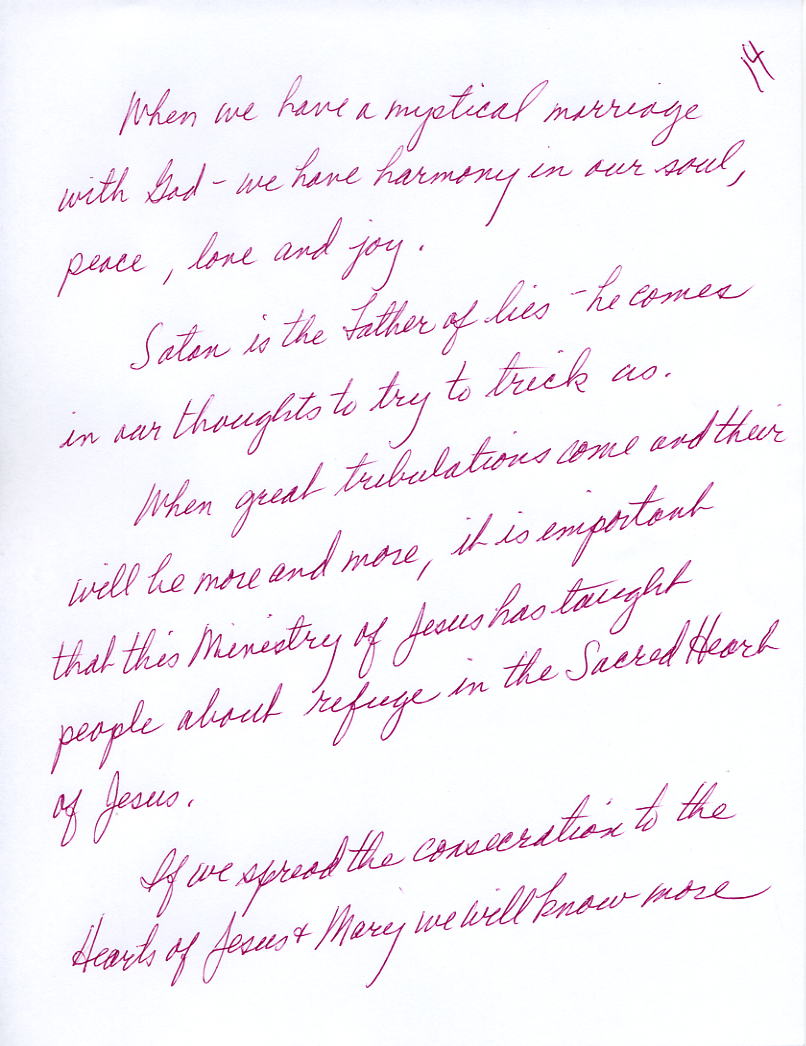 14
When we have a mystical marriage
with God - we have harmony in our soul,
peace, love and joy.
Satan is the Father of lies - he comes
in our thoughts to try to trick us.
When great tribulations come and their
will be more and more, it is important
that this Ministry of Jesus has taught
people about refuge in the Sacred Heart
of Jesus.
If we spread the consecration to the
Hearts of Jesus + Mary we will know more